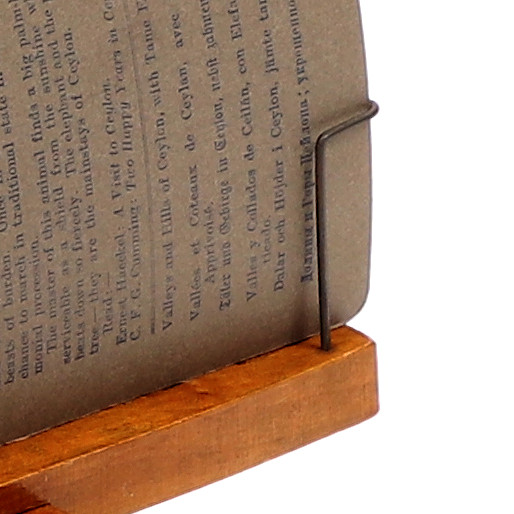 beasts of burden. Once
chance to march in traditional state in
monial procession.
The master of this animal finds a big palm-
serviceable as a shield from the sunshine
beats down so fiercely. The elephant and the
tree—they are the mainstays of Ceylon.
Read:—
Ernest Haeckel: A Visit to Ceylon.
C. F. G. Cumming: Two Happy Years in Ce
Valleys and Hills of Ceylon, with Tame
Vallées et Coteaux de Ceylan, avec
Apprivoisé.
Täler und Gebirge in Ceylon, nebst zahmem
Valles y Collados de Ceilán, con Elefa
ticado.
Dalar och Höjder i Ceylon, jämte tam
Долины и Горы Цейлона; укрощенно